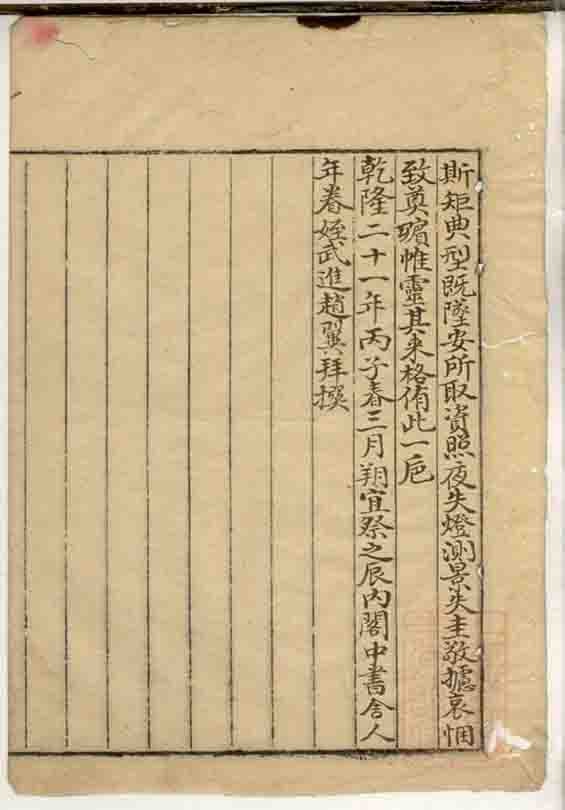 斯矩典型既墜安所取資照夜失燈測景失圭敬攄哀悃
致奠殯帷靈其来格侑此一巵
乾隆二十一年丙子春三月朔宜祭之辰内閣中書舎人
年眷姪武進趙翼拜撰